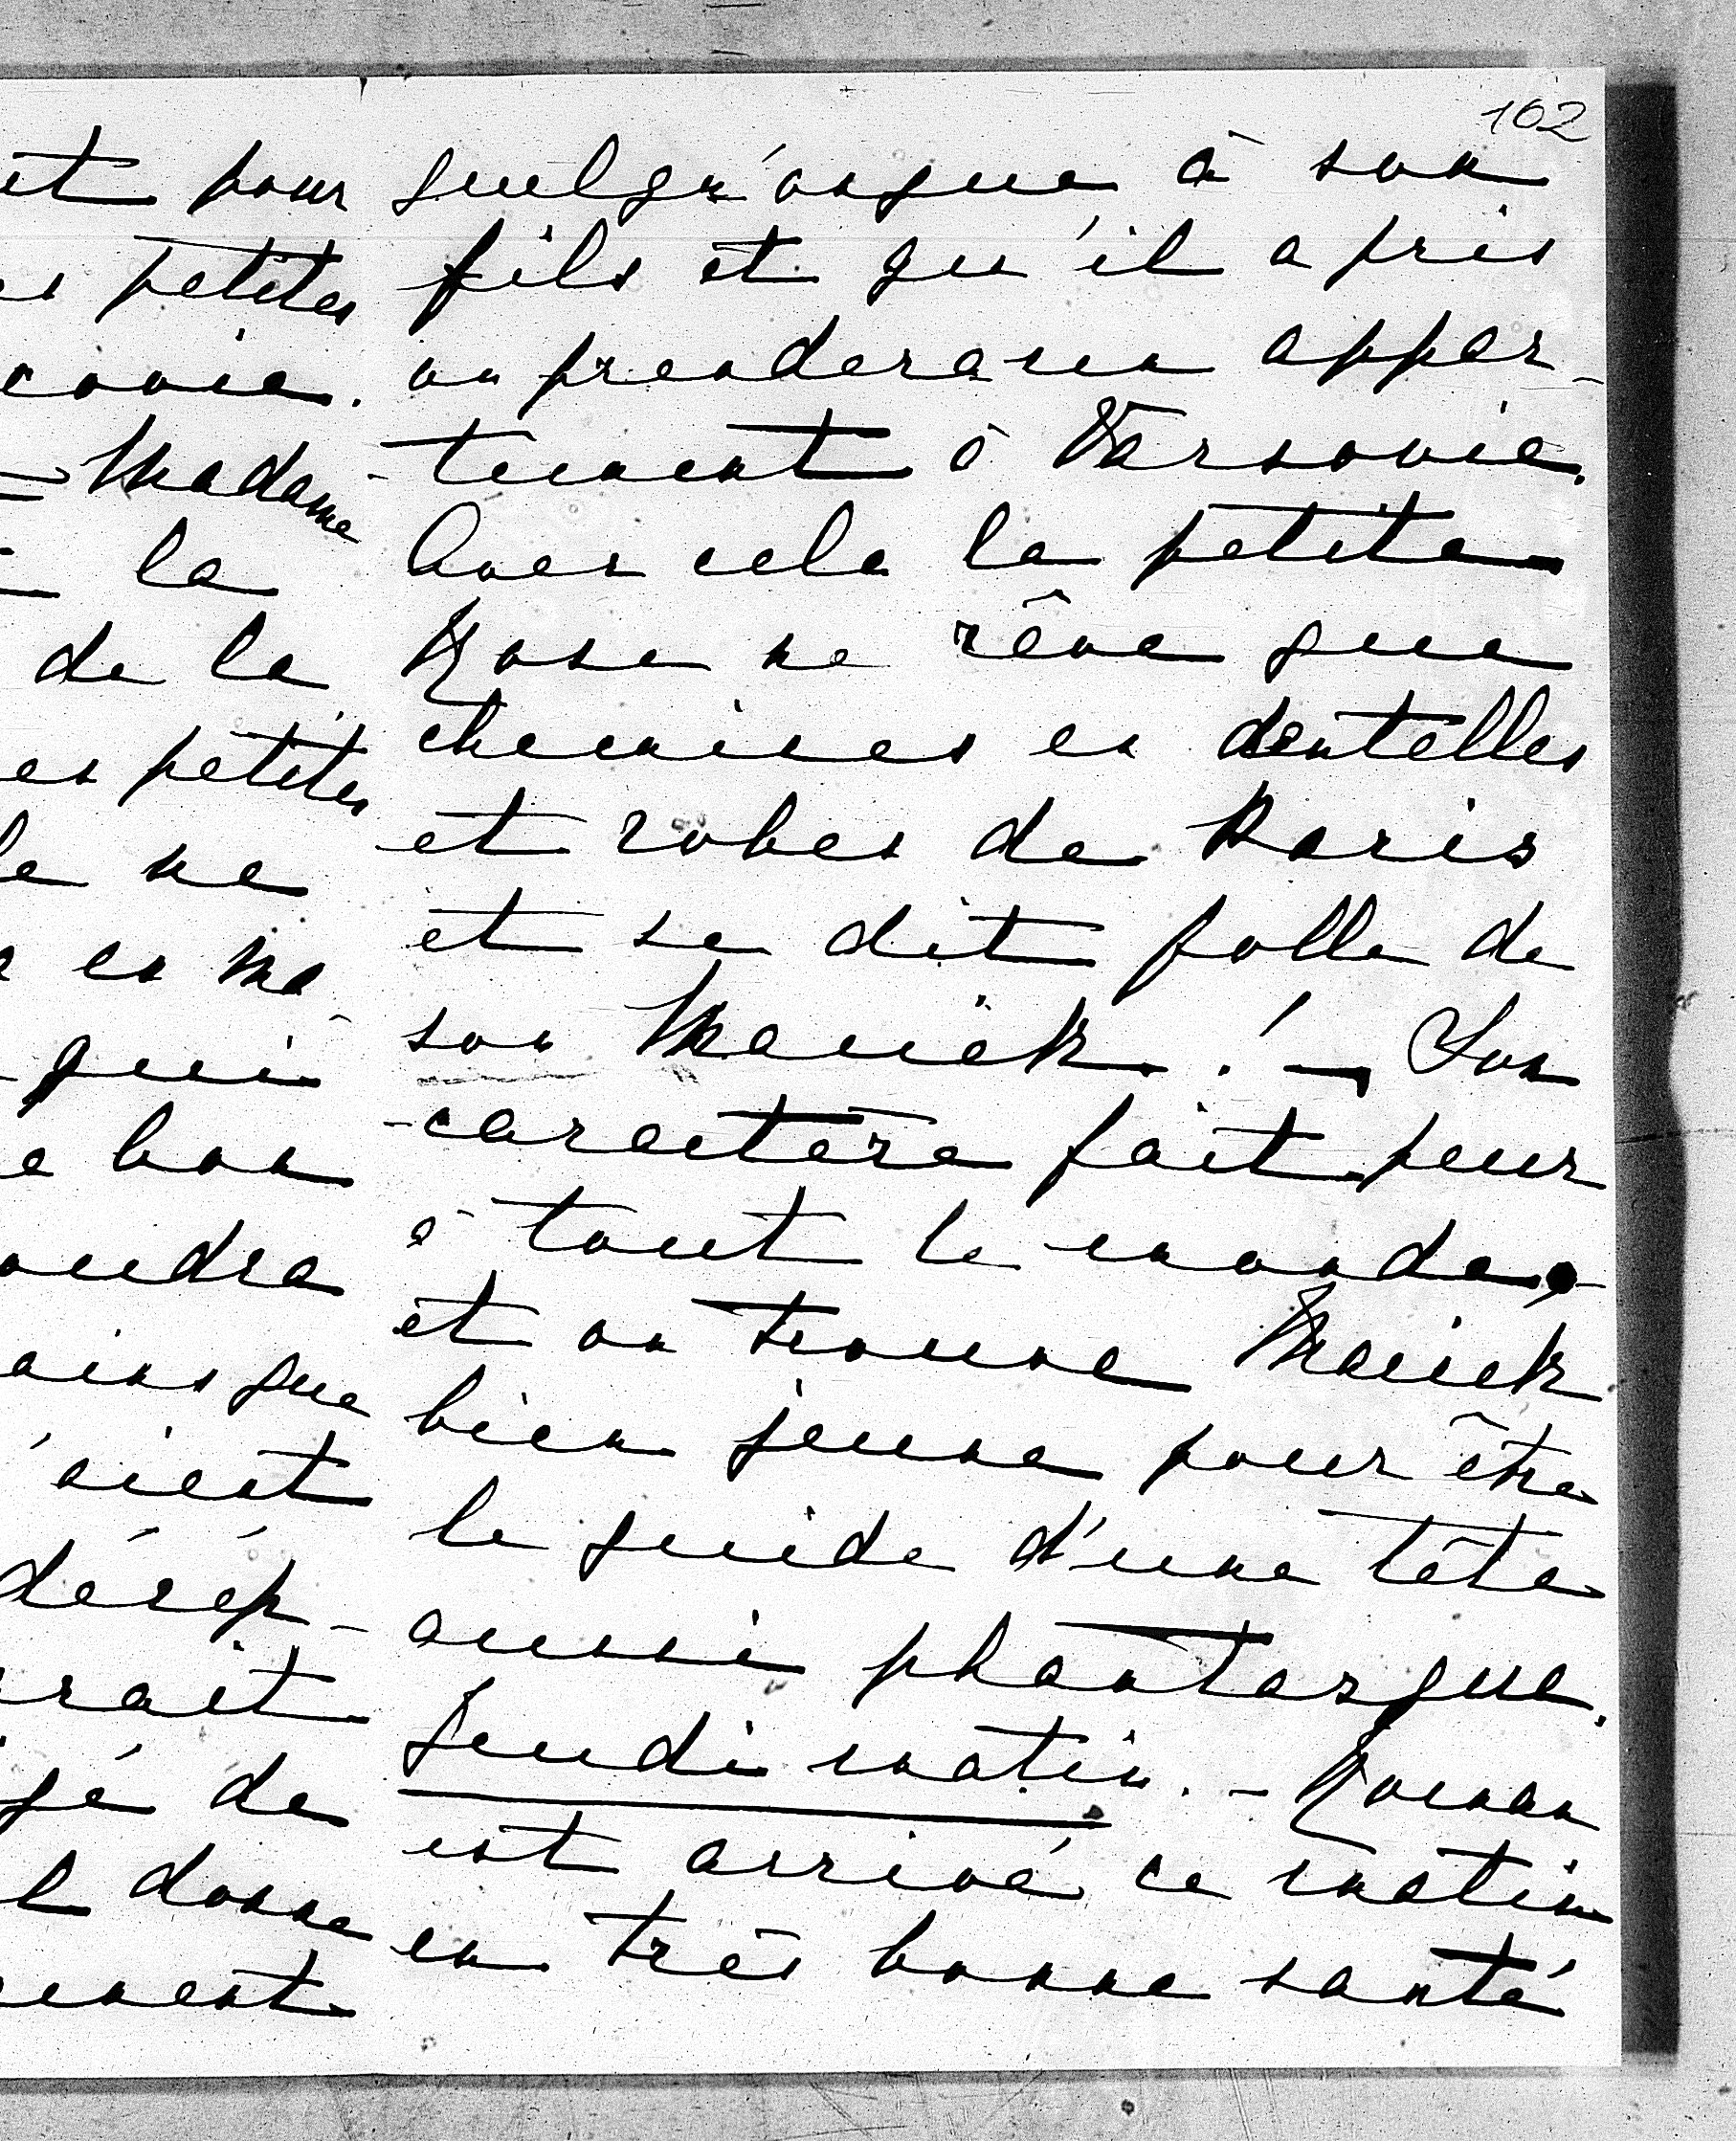 102
pour
petites
Madame
la
de la
petites
ne
en ma-
qui
bon
que
de
donne
quelqu'onque à son
fils et qu'il a pris
ou prendera un appar-
-tement à Varsovie.
Avec cela la petite
Rose ne rêve que
chemises en dentelles
et robes de Paris
et se dit folle de
son Maciek! — Son
-caractère fait peur
à tout le monde,
et on trouve Maciek
bien jeune pour être
le guide d'une tête
aussi phantasque.
Jeudi matin. - Roman
est arrivé ce matin
en très bonne santé